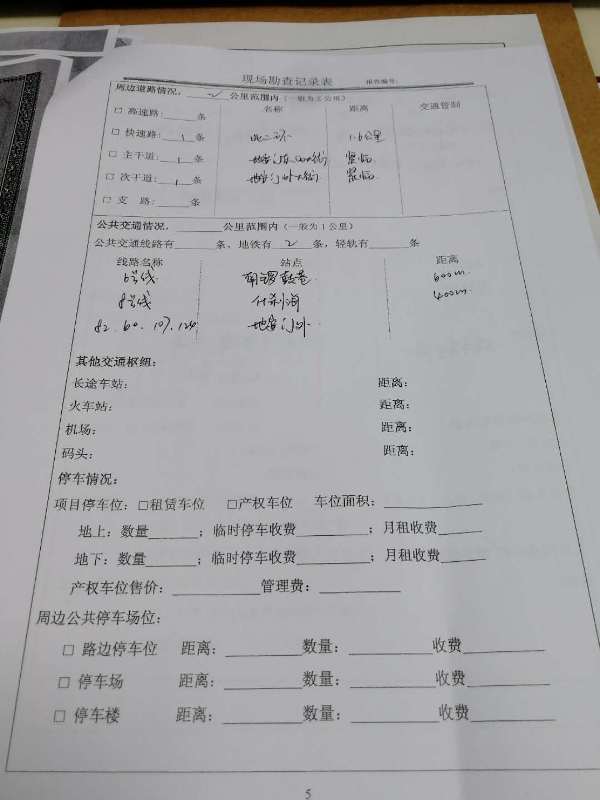 现场勘查记录表 报告编号:
周边道路情况, 2 公里范围内(一般为2公里)
名称 距离 交通管制
□ 高速路:______条
□ 快速路: 1 条 北二环 1.6公里
□ 主干道: 1 条 地安门东大街 紧临
□ 次干道: 1 条 地安门外大街 紧临
□ 支 路:______条
公共交通情况,______公里范围内(一般为1公里)
公共交通线路有______条、地铁有 2 条,轻轨有______条
线路名称 站点 距离
6号线 南锣鼓巷 600m
8号线 什刹海 400m
82.60.107.124 地安门外
其他交通枢纽:
长途车站: 距离:
火车站: 距离:
机场: 距离:
码头: 距离:
停车情况:
项目停车位: □租赁车位 □产权车位 车位面积:______
地上:数量______;临时停车收费______;月租收费______
地下:数量______;临时停车收费______;月租收费______
产权车位售价:______管理费:______
周边公共停车场位:
□ 路边停车位 距离:______数量:______收费______
□ 停车场 距离:______数量:______收费______
□ 停车楼 距离:______数量:______收费______
5